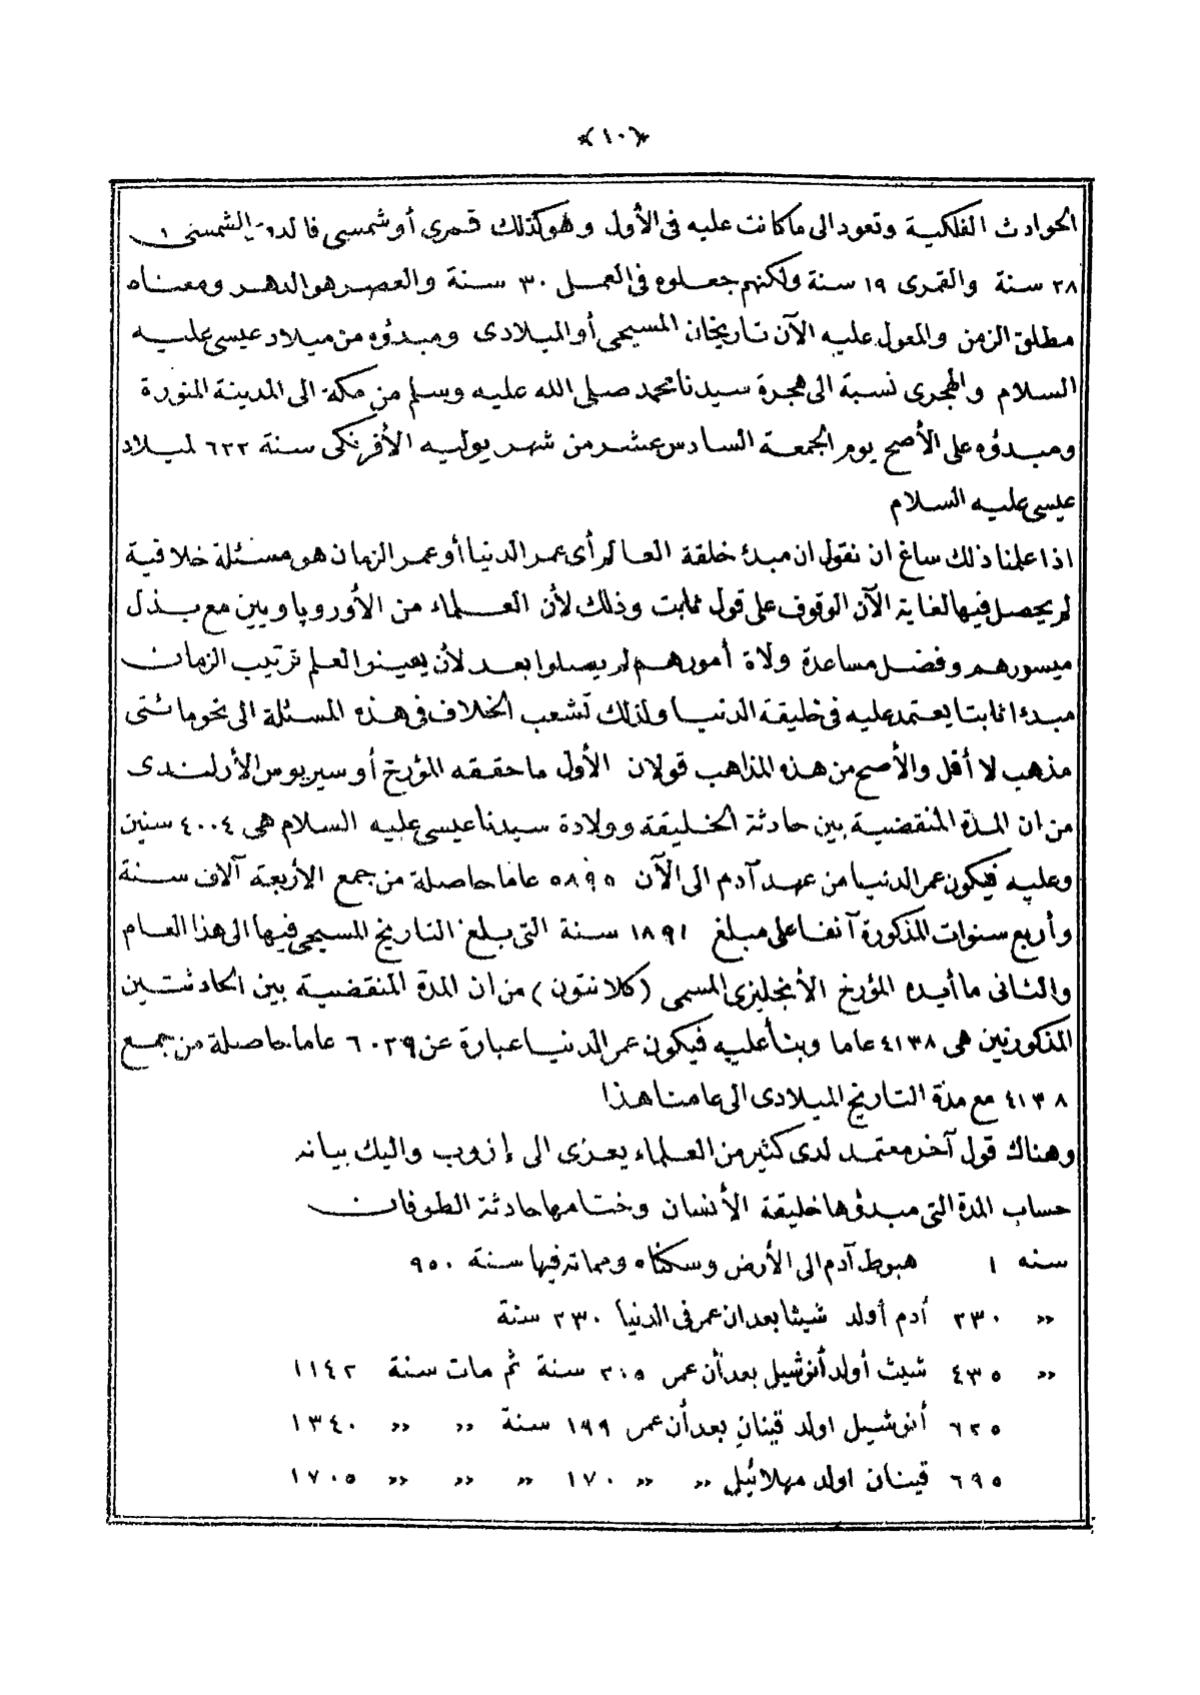 ﴿١٠﴾
الحوادث الفلكية وتعود الى ما كانت عليه فى الأول وهو كذلك قمرى أو شمسى فالدور الشمسى
٢٨ سنة والقمرى ١٩ سنة ولكنهم جعلوه فى العمل ٣٠ سنة والعصر هو الدهر ومعناه
مطلق الزمن والمعول عليه الآن تاريخان المسيحى أو الميلادى ومبدؤه من ميلاد عيسى عليه
السلام والهجرى نسبة الى هجرة سيدنا محمد صلى الله عليه وسلم من مكة الى المدينة المنورة
ومبدؤه على الأصح يوم الجمعة السادس عشر من شهر يوليه الأفرنكى سنة ٦٢٢ لميلاد
عيسى عليه السلام
اذا علمنا ذلك ساغ ان نقول ان مبدء خلقة العالم أى عمر الدنيا أو عمر الزمان هو مسئلة خلافية
لم يحصل فيها لغاية الآن الوقوف على قول ثابت وذلك لأن العلماء من الأوروپاويين مع بذل
ميسورهم وفضل مساعدة ولاة أمورهم لم يصلوا بعد لأن يعينوا لعلم ترتيب الزمان
مبدءا ثابتا يعتمد عليه فى خليقة الدنيا ولذلك تشعب الخلاف فى هذه المسئلة الى نحو مائتى
مذهب لا أقل والأصح من هذه المذاهب قولان الأول ما حققه المؤرخ أوسيريوس الأرلندى
من ان المدة المنقضية بين حادثة الخليقة وولادة سيدنا عيسى عليه السلام هى ٤٠٠٤ سنين
وعليه فيكون عمر الدنيا من عهد آدم الى الآن ٥٨٩٥ عاما حاصلة من جمع الأربعة آلاف سنة
وأربع سنوات المذكورة آنفا على مبلغ ١٨٩١ سنة التى بلغ التاريخ المسيحى فيها الى هذا العام
والثانى ما أيده المؤرخ الأنجليزى المسمى (كلانتون) من ان المدة المنقضية بين الحادثتين
المذكورتين هى ٤١٣٨ عاما وبنأ عليه فيكون عمر الدنيا عبارة عن ٦٠٢٩ عاما حاصلة من جمع
٤١٣٨ مع مدة التاريخ الميلادى الى عامنا هذا
وهناك قول آخر معتمد لدى كثير من العلماء يعزى الى إزوب واليك بيانه
حساب المدة التى مبدؤها خليقة الأنسان وختامها حادثة الطوفان
سنه ١ هبوط آدم الى الأرض وسكناه ومماته فيها سنة ٩٥٠
» ٢٣٠ أدم أولد شيثا بعد ان عمر فى الدنيا ٢٣٠ سنة
» ٤٣٥ شيث أولد أنوشيل بعد أن عمر ٢٠٥ سنة ثم مات سنة ١١٤٢
٦٢٥ أنوشيل اولد قينان بعد أن عمر ١٩٩ سنة » » » ١٣٤٠
٦٩٥ قينان اولد مهلائيل » » ١٧٠ » » » » ١٧٠٥